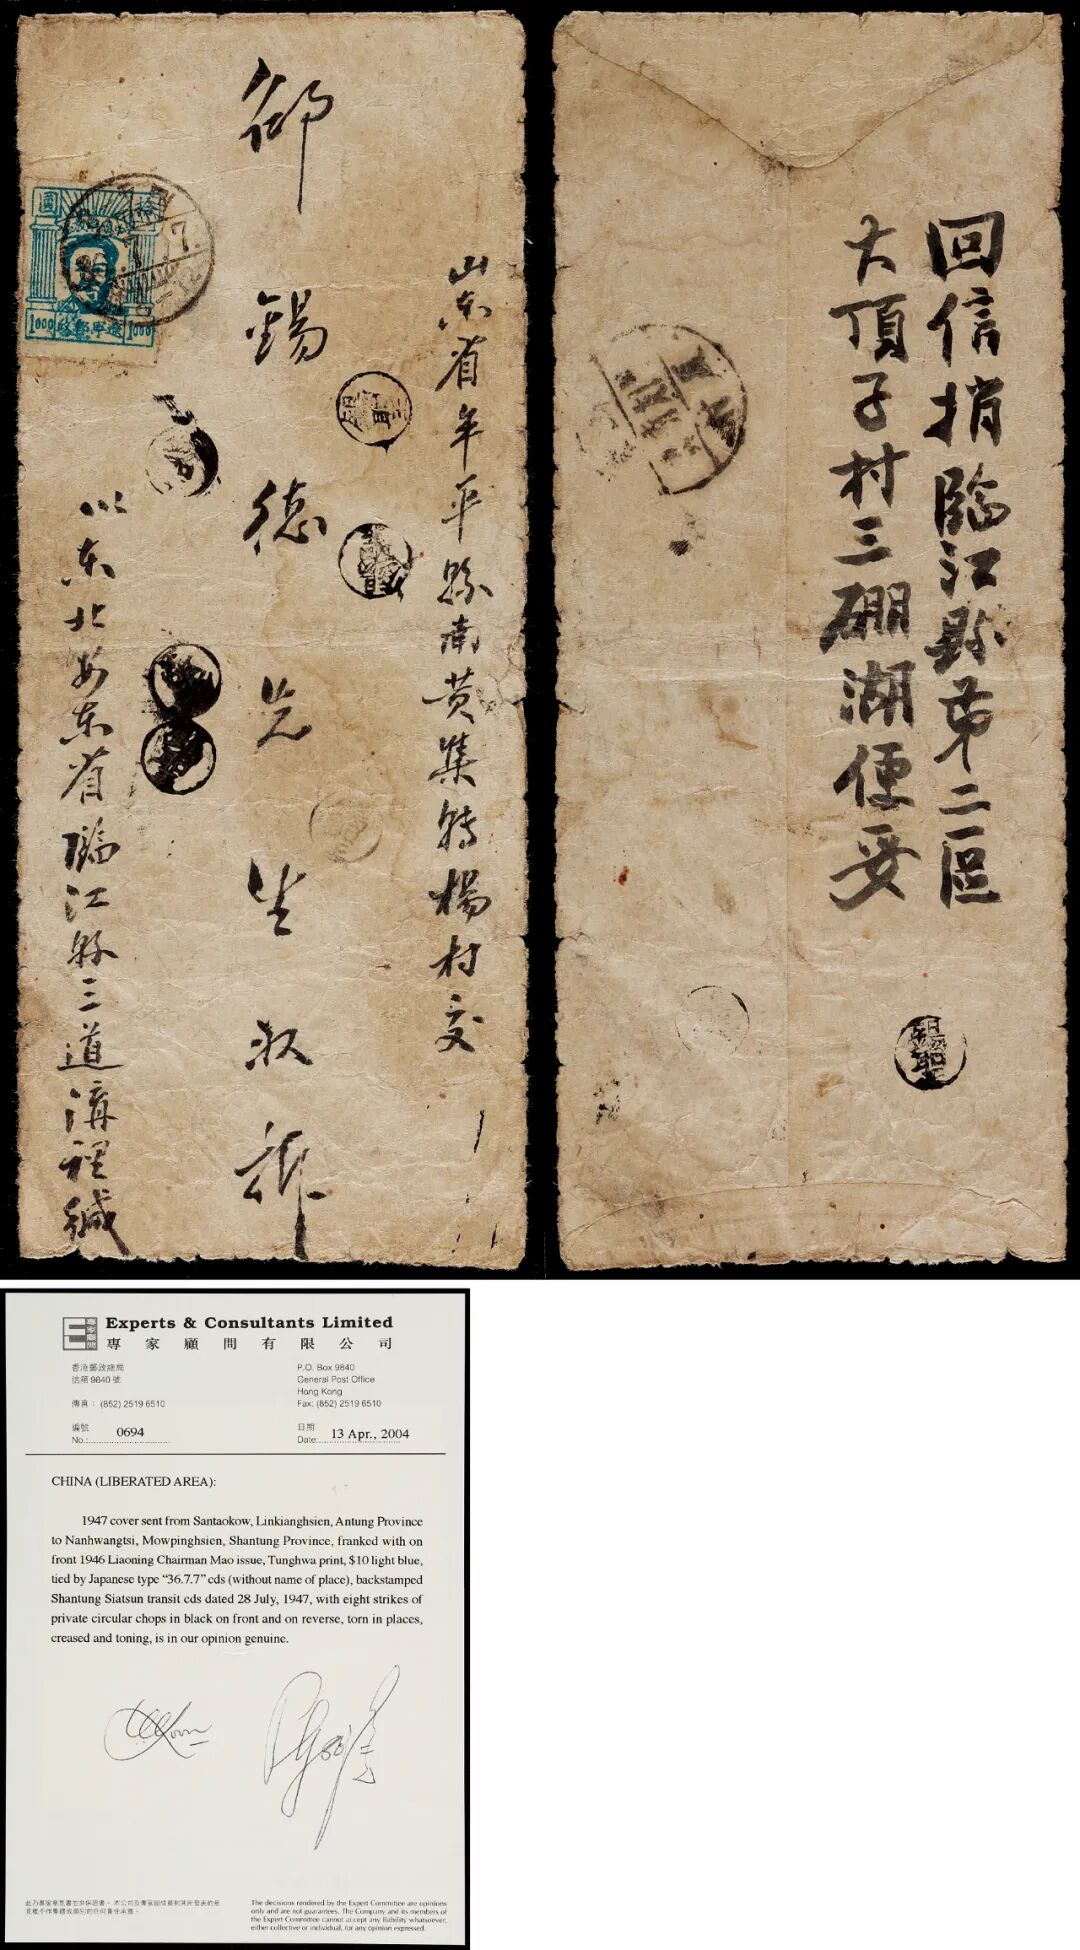 山东省牟平縣南黄集轉楊村交
邵錫德先生收拆
以东北安东省臨江縣三道溝裡緘
圓 拾
1000 遼寧郵政 1000
7.7
回信捎臨江縣第二區
大頂子村三硼湖便妥
Experts & Consultants Limited
專家顧問有限公司
香港郵政總局
信箱 9840 號
傳真： (852) 2519 6510
P.O. Box 9840
General Post Office
Hong Kong
Fax: (852) 2519 6510
編號
No.: 0694
日期
Date: 13 Apr., 2004
CHINA (LIBERATED AREA):
1947 cover sent from Santaokow, Linkianghsien, Antung Province
to Nanhwangtsi, Mowpinghsien, Shantung Province, franked with on
front 1946 Liaoning Chairman Mao issue, Tunghwa print, $10 light blue,
tied by Japanese type “36.7.7” cds (without name of place), backstamped
Shantung Siatsun transit cds dated 28 July, 1947, with eight strikes of
private circular chops in black on front and on reverse, torn in places,
creased and toning, is in our opinion genuine.
The decisions rendered by the Expert Committee are opinions
only and are not guarantees. The Company and its members of
the Expert Committee cannot accept any liability whatsoever,
either collective or individual, for any opinion expressed.